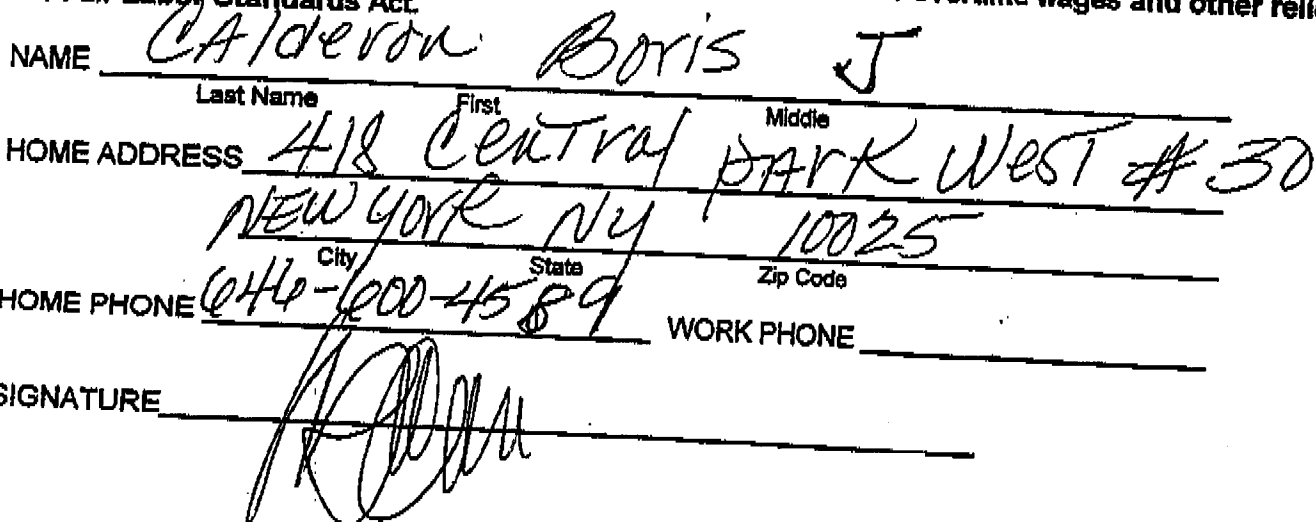 Fair Labor Standards Act. overtime wages and other relie
NAME CAlderon Boris J
Last Name First Middle
HOME ADDRESS 418 Central PARK West # 30
NEW YORK NY 10025
City State Zip Code
HOME PHONE 646-600-4589 WORK PHONE
SIGNATURE